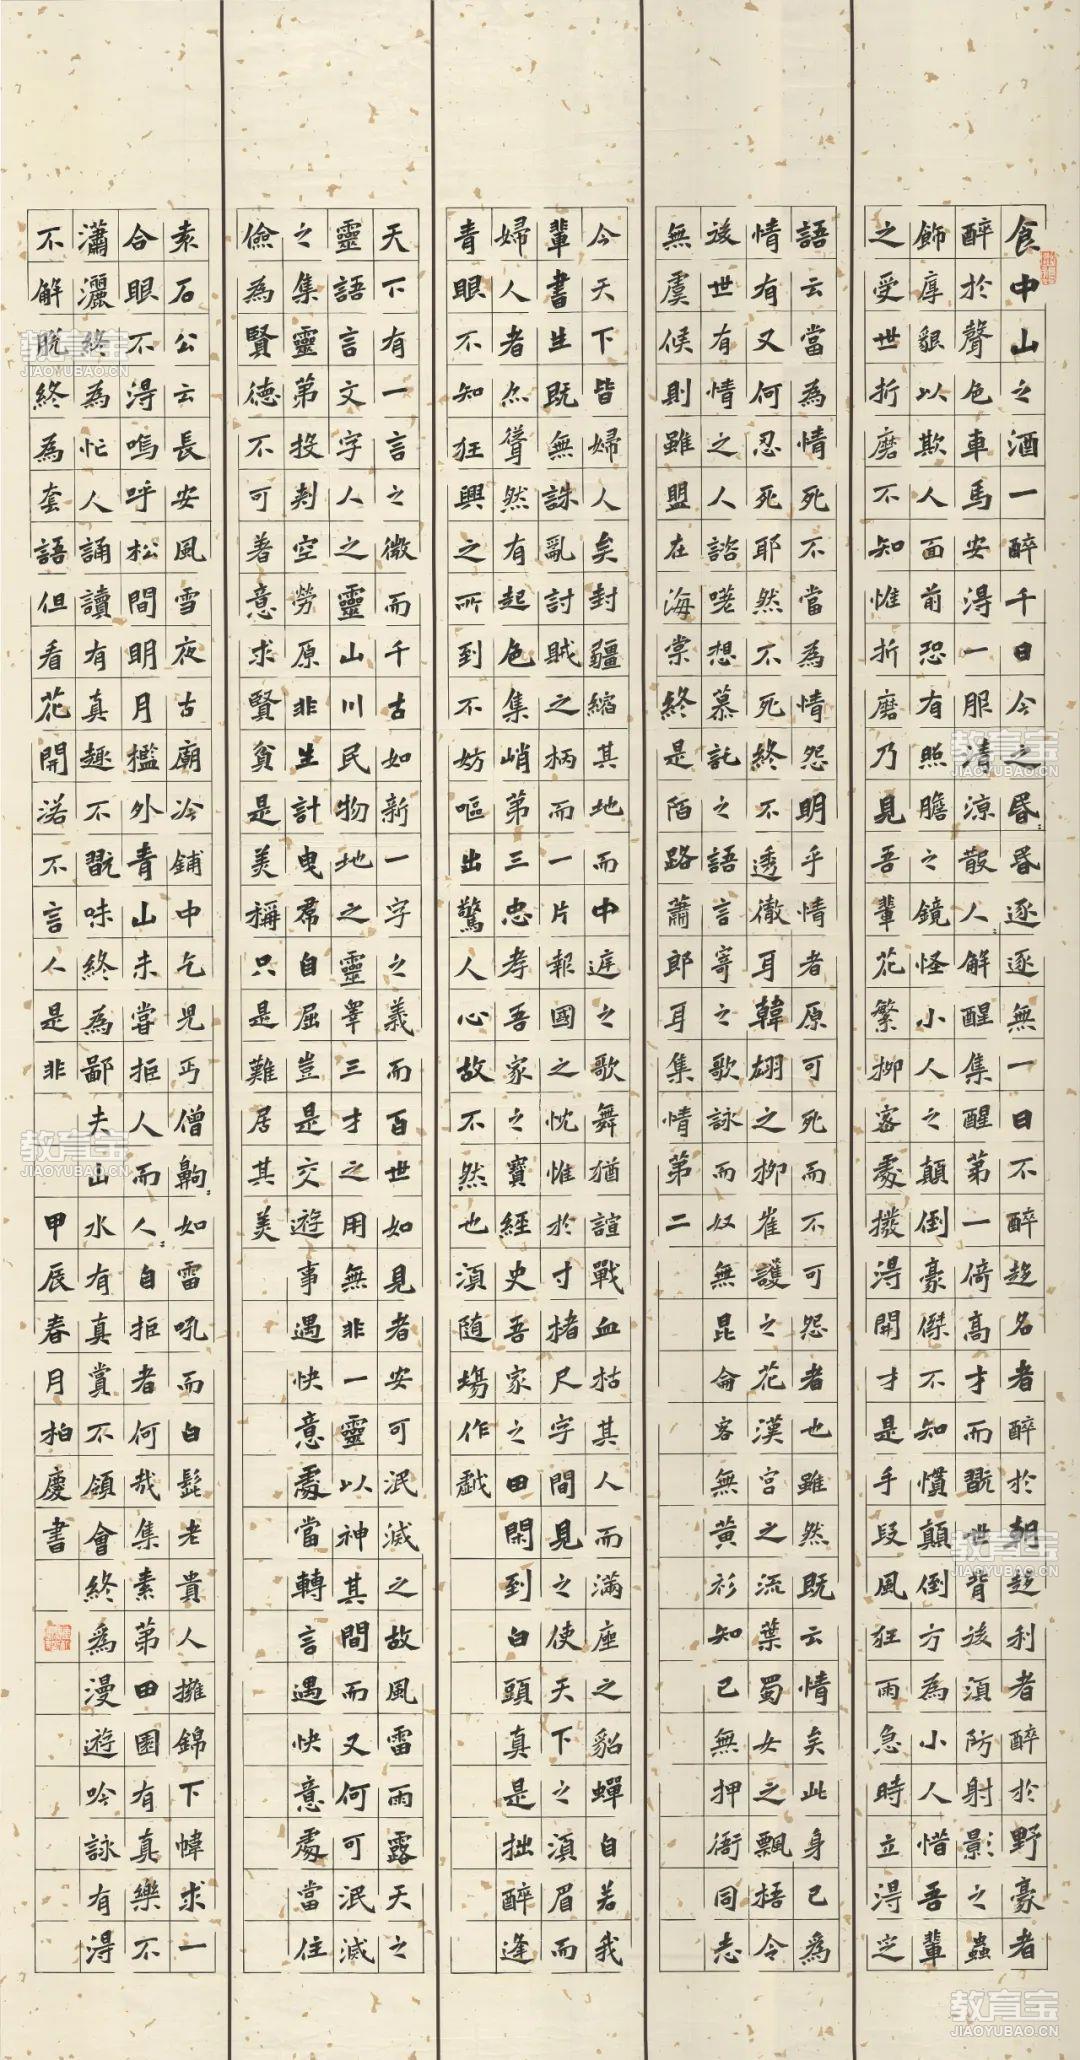 食中山之酒一醉千日今之昏〻逐逐無一日不醉趍名者醉於朝趍利者醉於野豪者
醉於聲色車馬安得一服清凉散人〻解醒集醒第一倚高才而翫世背後須防射影之蟲
飾厚貌以欺人面前恐有照膽之鏡怪小人之顛倒豪傑不知慣顛倒方為小人惜吾輩
之受世折磨不知惟折磨乃見吾輩花繁柳密處撥得開才是手段風狂雨急時立得定
語云當為情死不當為情怨明乎情者原可死而不可怨者也雖然既云情矣此身已為
情有又何忍死耶然不死終不透徹耳韓翃之柳崔護之花漢宮之流葉蜀女之飄梧令
後世有情之人諮嗟想慕託之語言寄之歌詠而奴無昆侖客無黃衫知己無押衙同志
無虞候則雖盟在海棠終是陌路蕭郎耳集情第二
今天下皆婦人矣封疆縮其地而中庭之歌舞猶諠戰血枯其人而滿座之貂蟬自若我
輩書生既無誅亂討賊之柄而一片報國之忱惟於寸楮尺字間見之使天下之須眉而
婦人者亦聳然有起色集峭第三忠孝吾家之寶經史吾家之田閑到白頭真是拙醉逢
青眼不知狂興之所到不妨嘔出驚人心故不然也須随場作戲
天下有一言之微而千古如新一字之義而百世如見者安可泯滅之故風雷雨露天之
靈語言文字人之靈山川民物地之靈睪三才之用無非一靈以神其間而又何可泯滅
之集靈第四投刺空勞原非生計曳裾自屈豈是交遊事遇快意處當轉言遇快意處當住
儉為賢德不可著意求賢貧是美稱只是難居其美
袁石公云長安風雪夜古廟冷鋪中乞兒丐僧齁〻如雷吼而白髭老貴人擁錦下幃求一
合眼不得嗚呼松間明月檻外青山未嘗拒人而人〻自拒者何哉集素第田園有真樂不
瀟灑終為忙人誦讀有真趣不翫味終為鄙夫山水有真賞不領會終為漫遊吟詠有得
不解脫終為套語但看花開落不言人是非
甲辰春月柏慶書
教育宝
JIAOYUBAO.CN
教育宝
JIAOYUBAO.CN
教育宝
JIAOYUBAO.CN
教育宝
JIAOYUBAO.CN
教育宝
JIAOYUBAO.CN